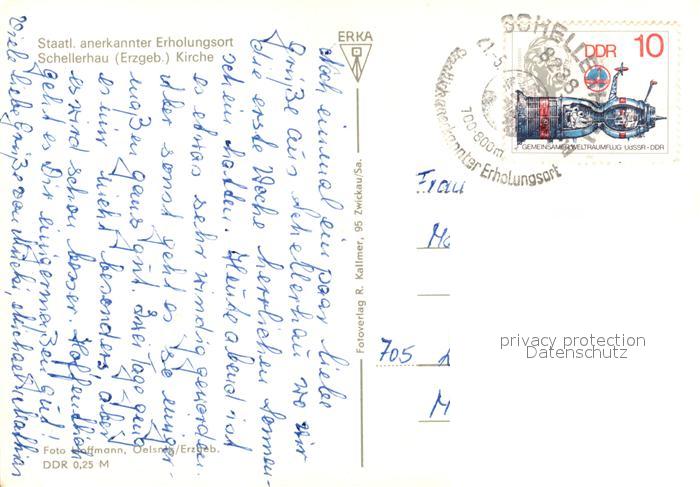 Staatl. anerkannter Erholungsort
Schellerhau (Erzgeb.) Kirche
Noch einmal ein paar liebe
Grüße aus Schellerhau wo wir
die erste Woche herrlichen Sonnen-
schein hatten. Heute abend ist
es etwas sehr windig geworden.
Aber sonst geht es so einiger-
maßen ganz gut. Zwei Tage ging
es mir nicht besonders aber
es wird schon besser. Hoffentlich
geht es Dir einigermaßen gut!
Viele liebe Grüße von
Foto Hoffmann, Oelsnitz/Erzgeb.
DDR 0,25 M
ERKA
Fotoverlag R. Kallmer, 95 Zwickau/Sa.
SCHELLERHAU
8238
21.-5.
700-800m
Staatlich anerkannter Erholungsort
DDR 10
GEMEINSAMER WELTRAUMFLUG UdSSR-DDR
Frau
705
privacy protection
Datenschutz